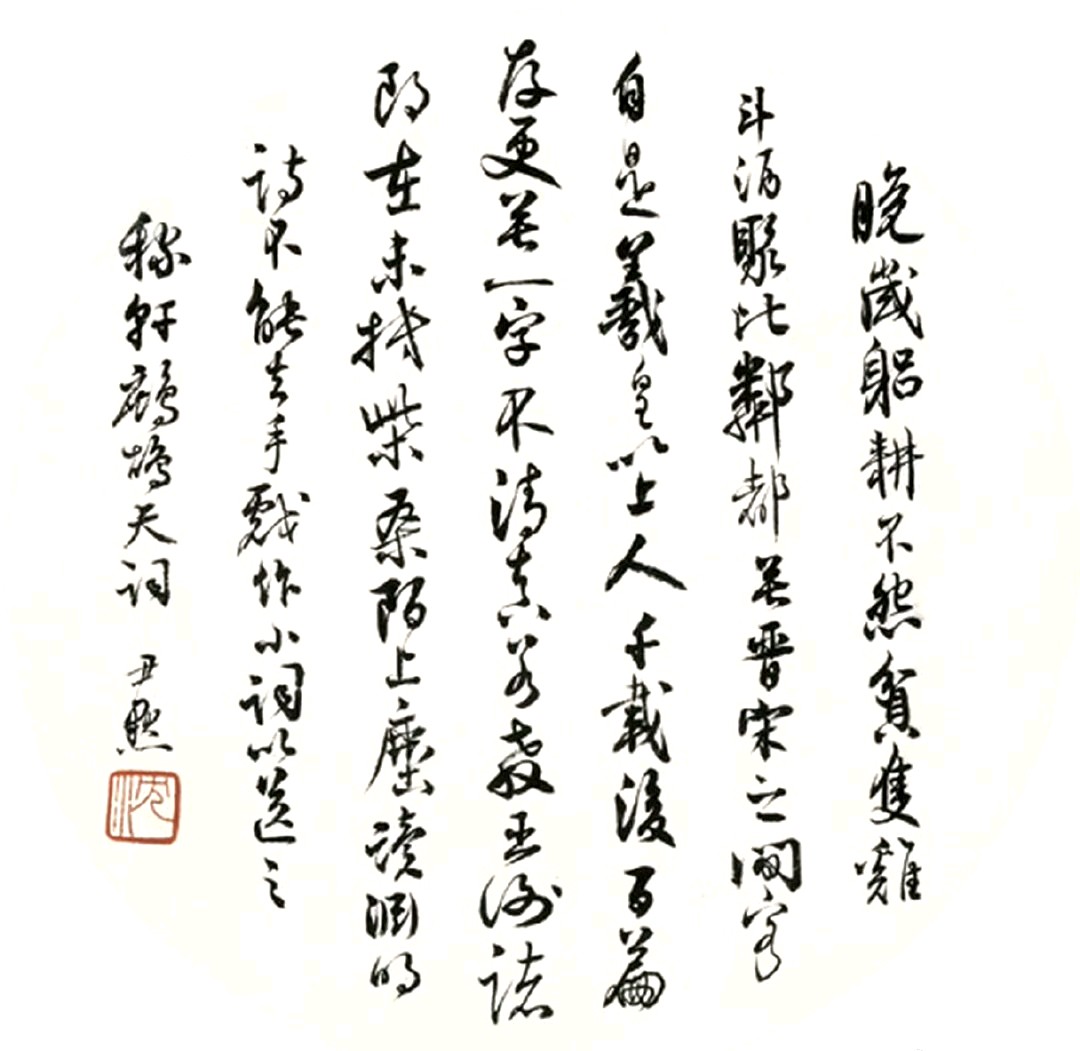 晚歲躳耕不怨貧隻雞
斗酒聚比鄰都無晉宋之間事
自是羲皇以上人千載後百篇
存更無一字不清真若教王謝諸
郎在未抵柴桑陌上塵讀淵明
詩不能去手戲作小詞以送之
稼軒鷓鴣天詞 尹默
沈